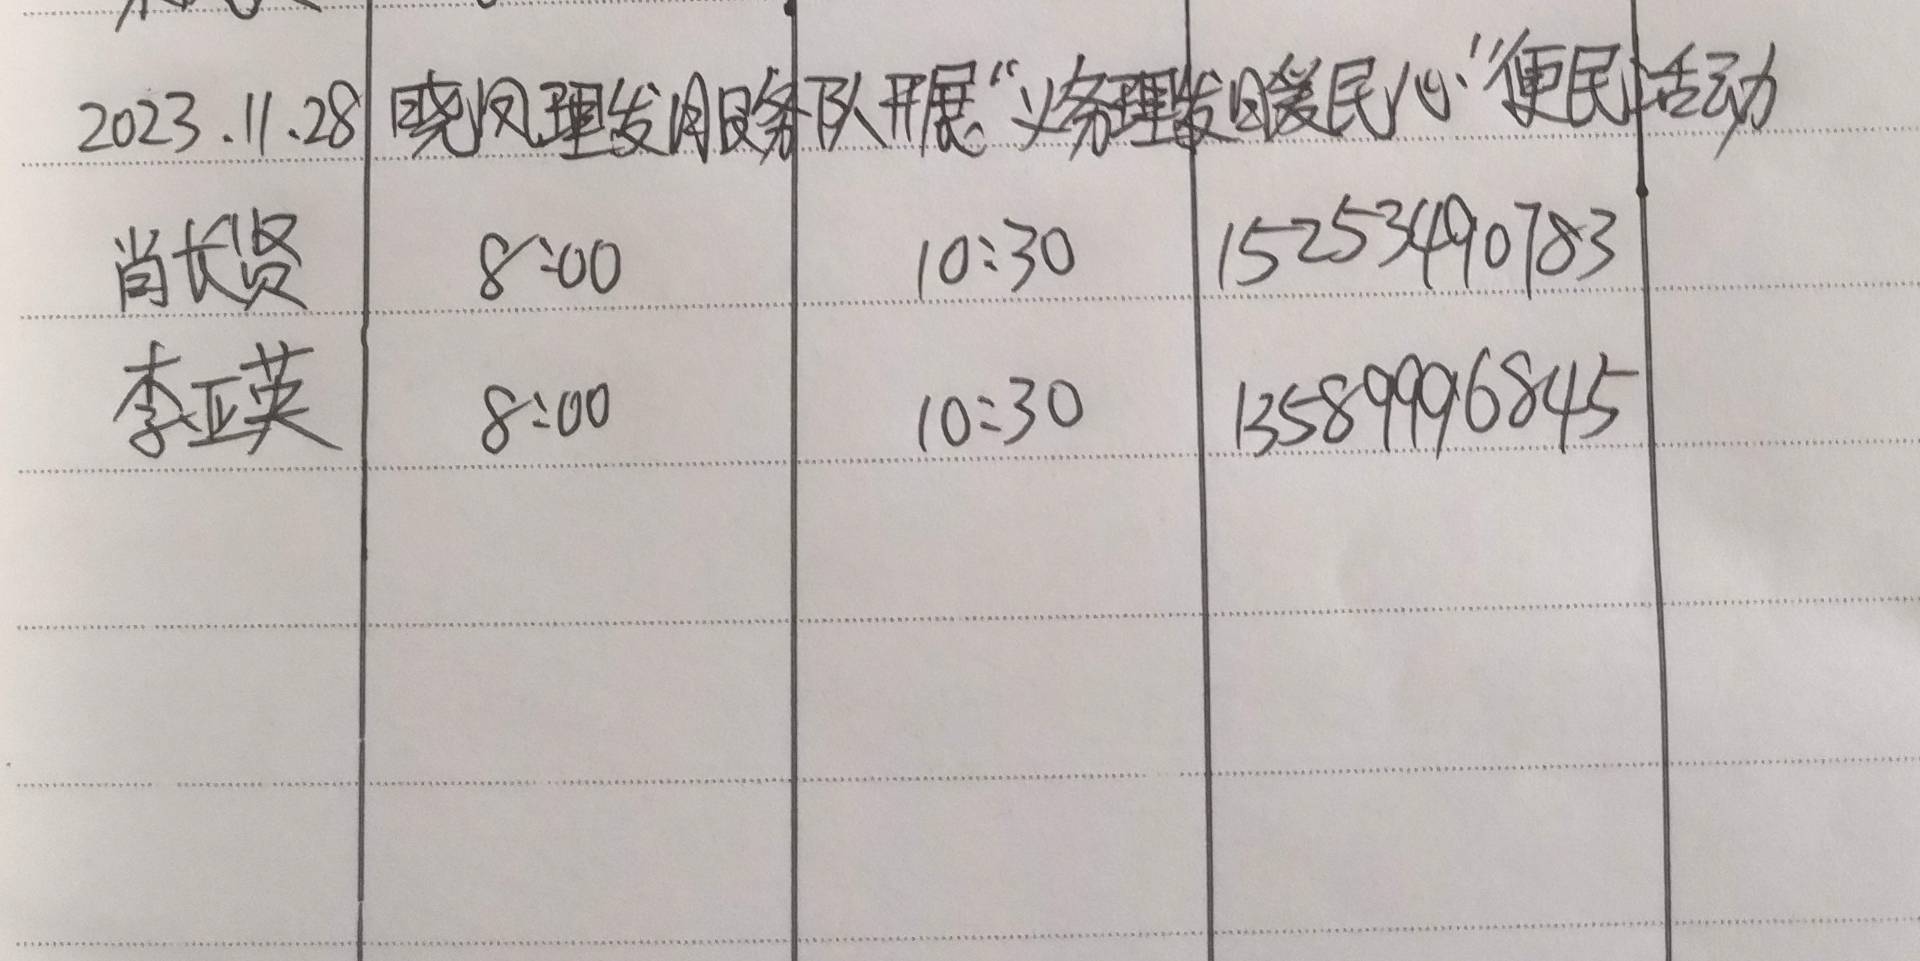 2023.11.28 晓凤理发服务队开展“义务理发暖民心”便民活动
肖长贤 8:00 10:30 15253490783
李亚英 8:00 10:30 13589996845